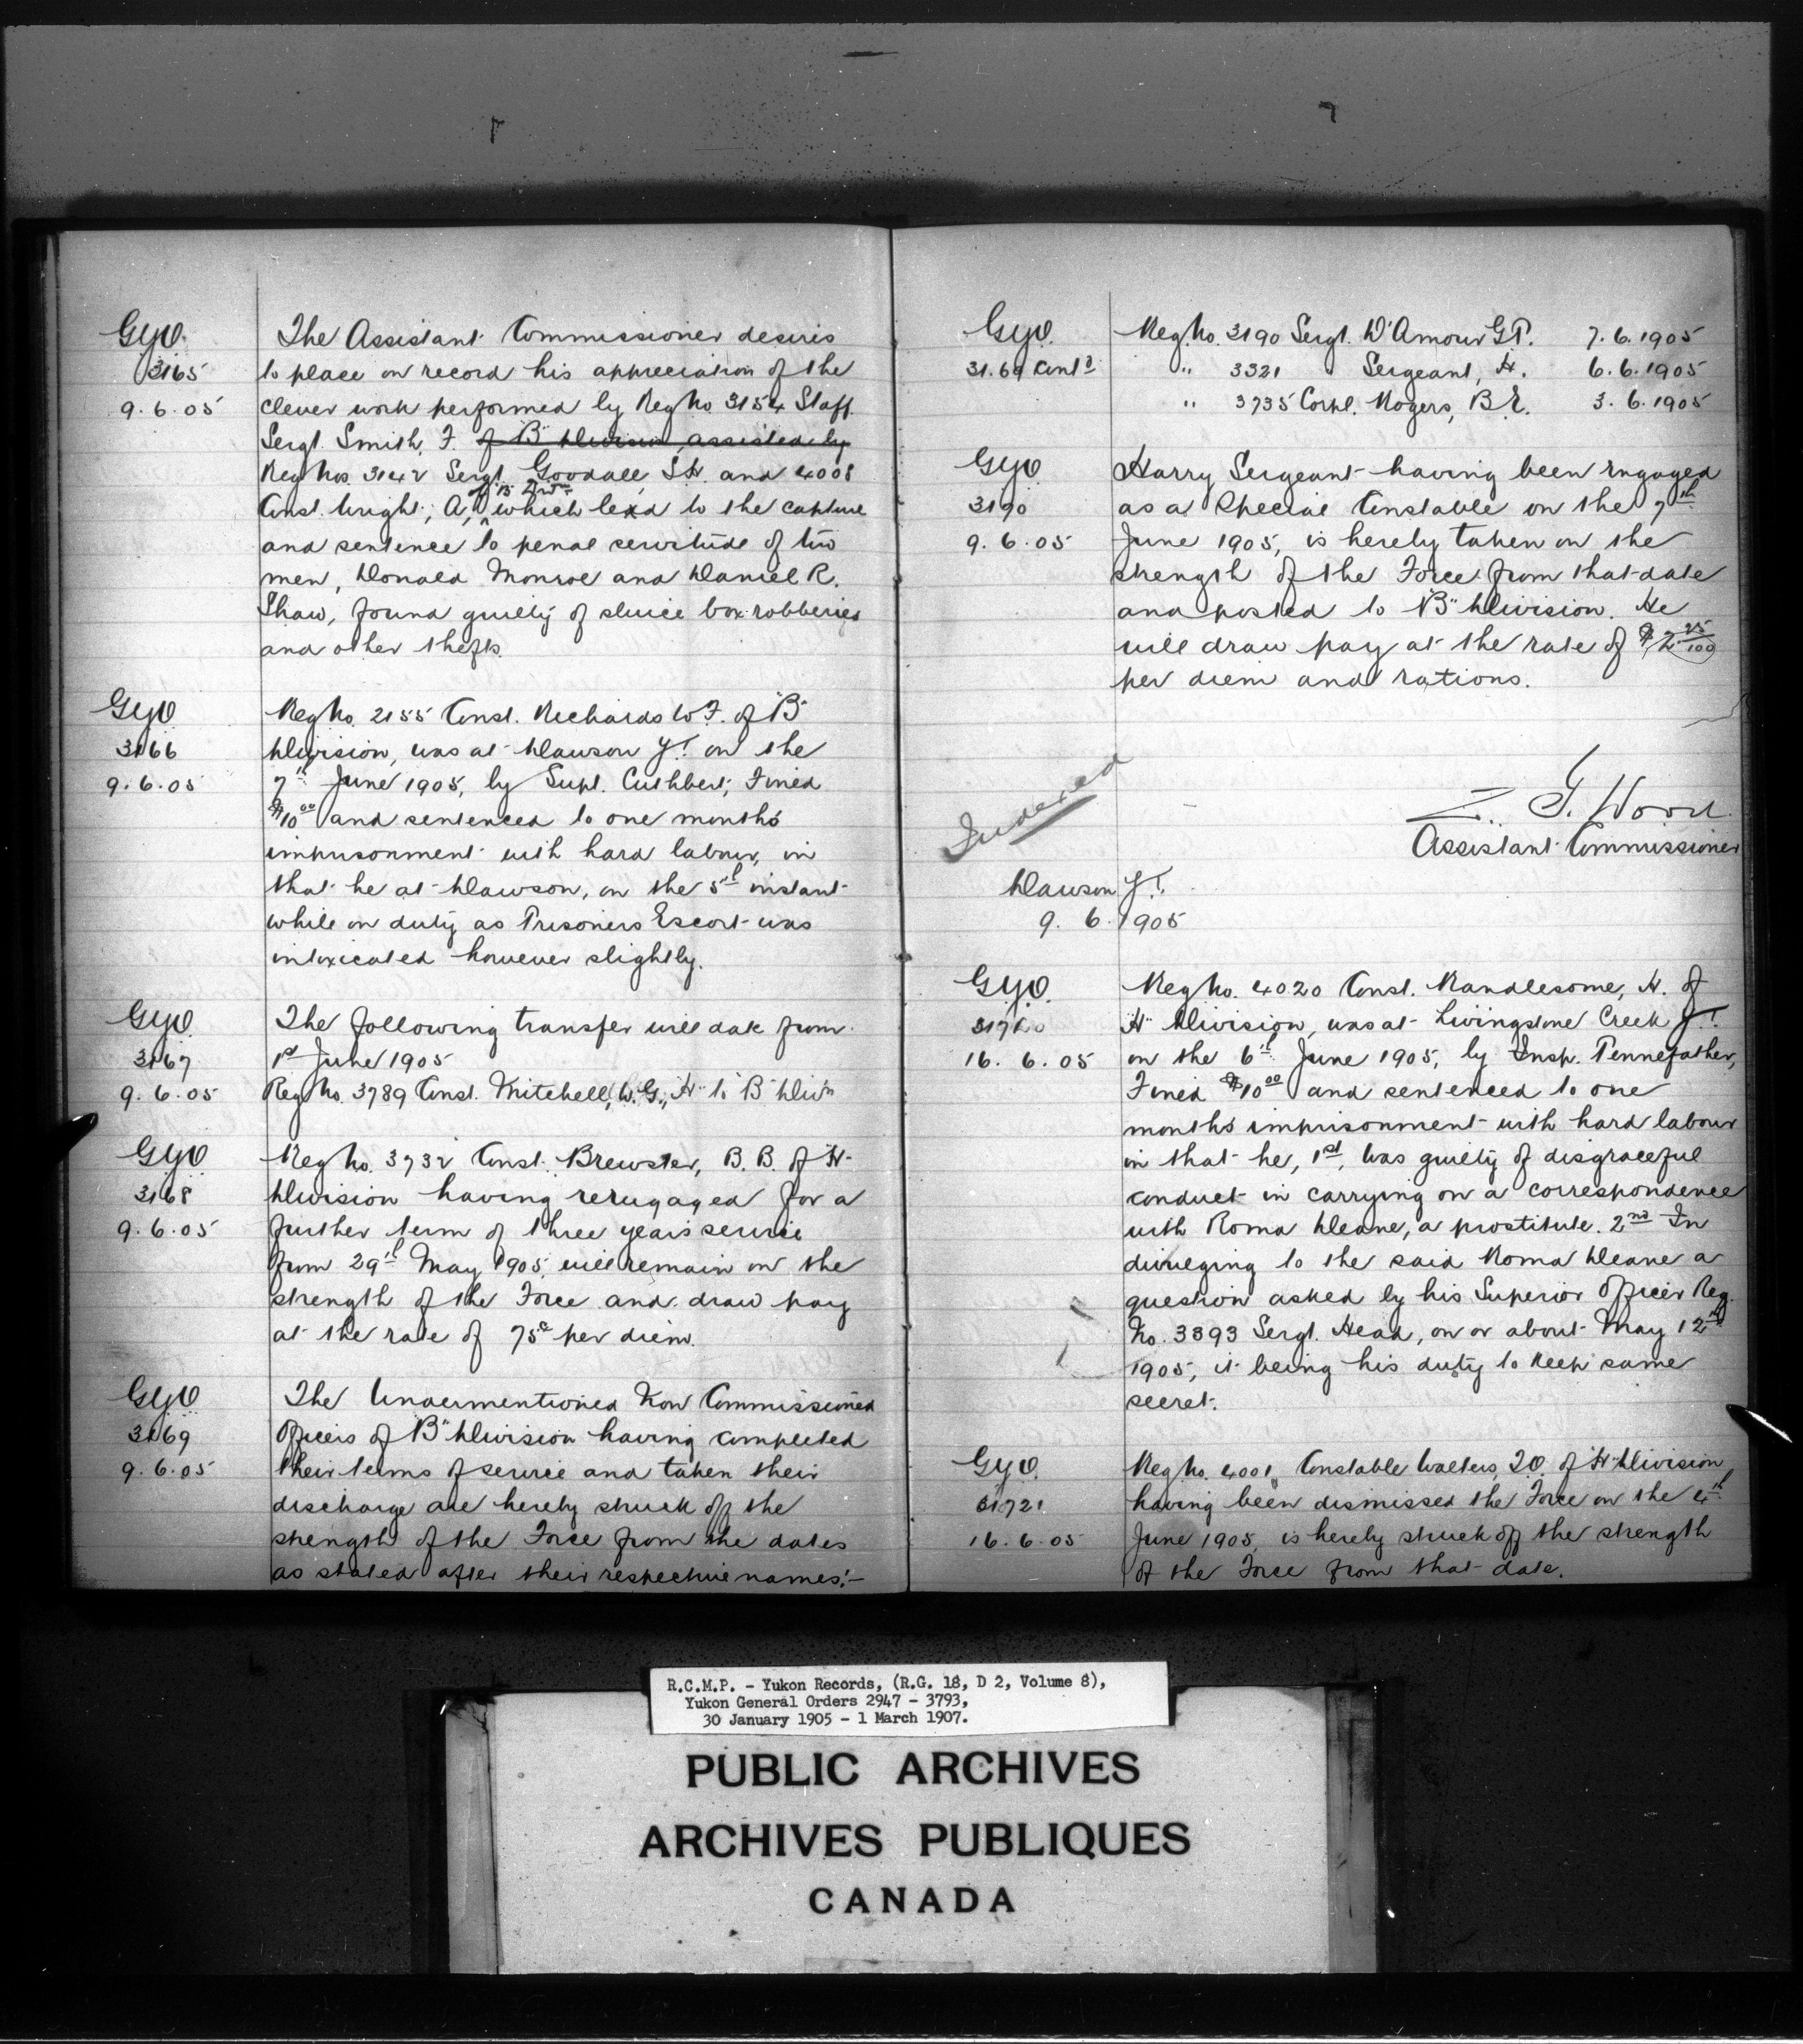 G.Y.O.
3165
9.6.05
The Assistant Commissioner desires
to place on record his appreciation of the
clever work performed by Reg No 3154 Staff
Sergt. Smith, F. of "B" Division, assisted by
Reg Nos. 3142 Sergt. Goodall, S.H. and 4008
of "B" Divn
Const. Wright, A, which lead to the capture
and sentence to penal servitude of two
men, Donald Monroe and Daniel R.
Shaw, found guilty of sluice box robberies
and other thefts.
G.Y.O.
3166
9.6.05
Reg No. 2155 Const. Richards W.F. of "B"
Division, was at Dawson Y.T. on the
7th June 1905, by Supt. Cuthbert, Fined
$10.00 and sentenced to one months
imprisonment with hard labour, in
that he at Dawson, on the 5th instant
while on duty as Prisoners Escort was
intoxicated however slightly.
G.Y.O.
3167
9.6.05
The following transfer will date from
1st June 1905
Reg No. 3789 Const. Mitchell, W.G., "H" to "B" Divn
G.Y.O.
3168
9.6.05
Reg No. 3732 Const. Brewster, B.B. of "H"
Division having reengaged for a
further term of three years service
from 29th May 1905, will remain on the
strength of the Force and draw pay
at the rate of 75c per diem.
G.Y.O.
3169
9.6.05
The Undermentioned Non Commissioned
Officers of "B" Division having completed
their terms of service and taken their
discharge are hereby struck off the
strength of the Force from the dates
as stated after their respective names:-
G.Y.O.
3169 Contd
Reg. No. 3190 Sergt. D'Amour G.T. 7.6.1905
" 3321 " Sergeant, H. 6.6.1905
" 3735 Corpl. Rogers, B.E. 3.6.1905
G.Y.O.
3170
9.6.05
Harry Sergeant having been engaged
as a Special Constable on the 7th
June 1905, is hereby taken on the
strength of the Force from that date
and posted to "B" Division. He
will draw pay at the rate of $2 25/100
per diem and rations.
Indexed
Z. T. Wood
Assistant Commissioner
Dawson Y.T.
9.6.1905
G.Y.O.
16.6.05
Reg No. 4020 Const. Randlesome, H. of
"H" Division, was at Livingstone Creek Y.T.
on the 6th June 1905, by Insp. Pennefather,
Fined $10.00 and sentenced to one
months imprisonment with hard labour
in that he, 1st, Was guilty of disgraceful
conduct in carrying on a correspondence
with Roma Deane, a prostitute. 2nd In
divulging to the said Roma Deane a
question asked by his Superior Officer Reg.
No. 3393 Sergt. Head, on or about May 12th
1905, it being his duty to keep same
secret.
G.Y.O.
16.6.05
Reg No. 4001 Constable Walters, of "H" Division,
having been dismissed the Force on the 4th
June 1905, is hereby struck off the strength
of the Force from that date.
R.C.M.P. - Yukon Records, (R.G. 18, D 2, Volume 8),
Yukon General Orders 2947 - 3793,
30 January 1905 - 1 March 1907.
PUBLIC ARCHIVES
ARCHIVES PUBLIQUES
CANADA